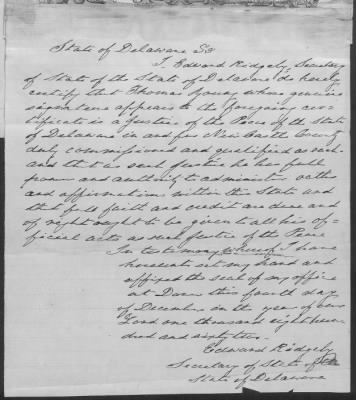 State of Delaware Ss
I, Edward Ridgely, Secretary
of State of the State of Delaware do hereby
certify that Thomas Young whose genuine
signature appears to the foregoing cer-
tificate is a Justice of the Peace of the State
of Delaware in and for New Castle County
duly commissioned and qualified as such
and that as such Justice he has full
power and authority to administer oaths
and affirmations within this State and
that full faith and credit are due and
of right ought to be given to all his of-
ficial acts as such Justice of the Peace
In testimony whereof I have
hereunto set my hand and
affixed the seal of my office
at Dover this fourth day
of December in the year of our
Lord one thousand eight hun-
dred and sixty two.
Edward Ridgely
Secretary of State of the
State of Delaware